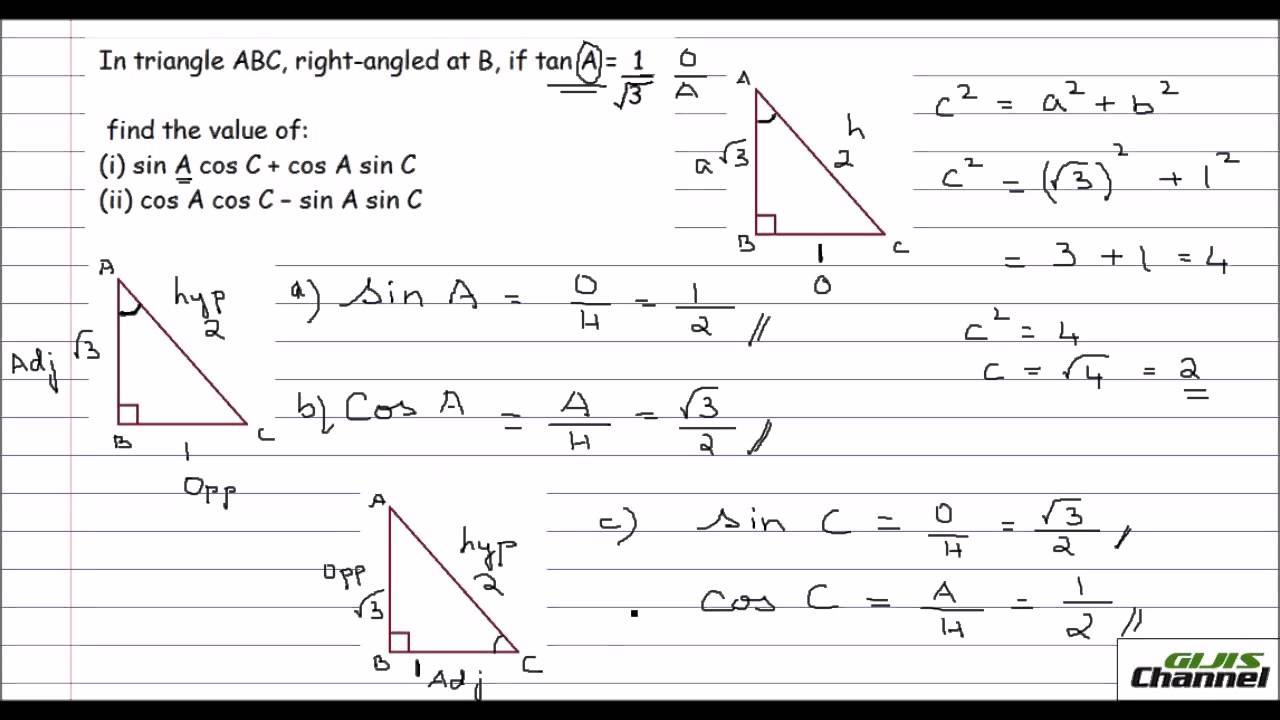 In triangle ABC, right-angled at B, if tan A = 1/√3 O/A
find the value of:
(i) sin A cos C + cos A sin C
(ii) cos A cos C – sin A sin C
A
a √3
h
2
B
1
C
O
c² = a² + b²
c² = (√3)² + 1²
= 3 + 1 = 4
c² = 4
c = √4 = 2
A
hyp
2
Adj √3
B
1
C
Opp
a) sin A = O/H = 1/2 //
b) Cos A = A/H = √3/2 //
A
hyp
2
Opp
√3
B
1
Adj
C
c) sin C = O/H = √3/2 /
cos C = A/H = 1/2 //
GIJIS
Channel